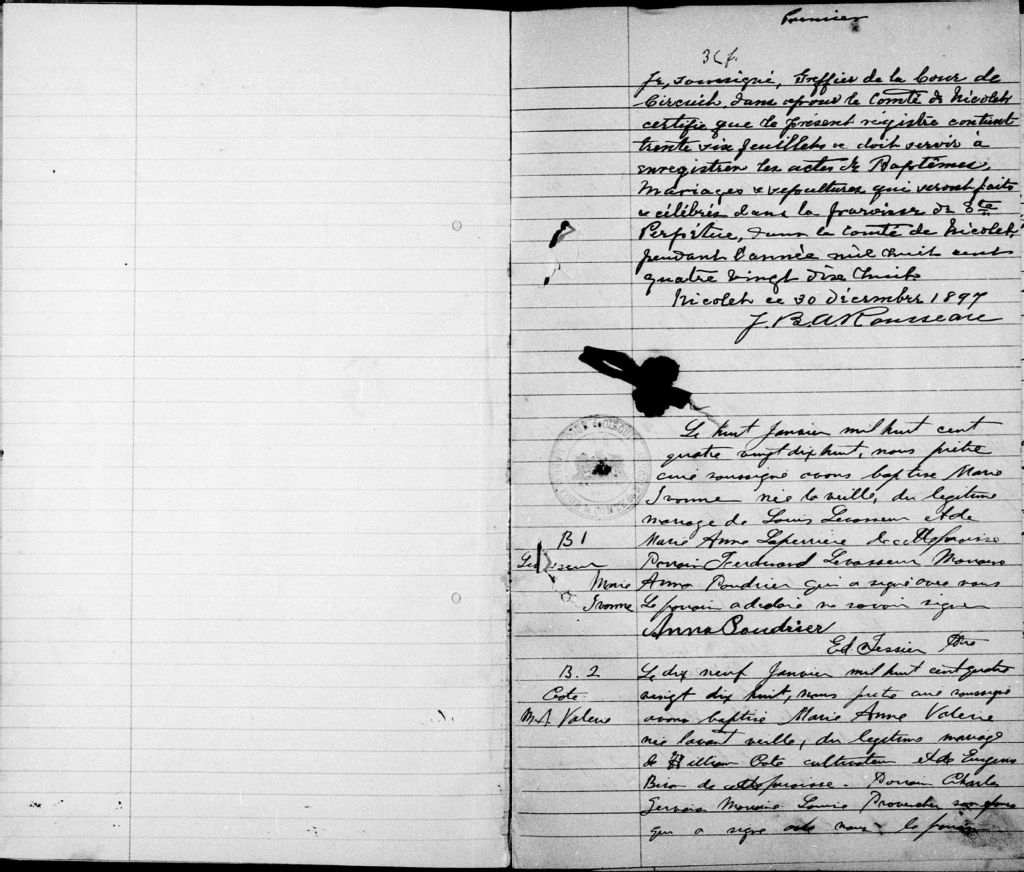 Premier
36 f.
Je, soussigné, Greffier de la Cour de
Circuit, dans & pour le Comté de Nicolet
certifie que le présent régistre contient
trente six feuillets & doit servir à
enregistrer les actes de Baptêmes,
Mariages & sépultures qui seront faits
& célébrés dans la paroisse de Ste
Perpétue, dans le Comté de Nicolet,
pendant l'année mil huit cent
quatre vingt dix huit.
Nicolet ce 30 décembre 1897
J. B. A. Rousseau
Le huit Janvier mil huit cent
quatre vingt dix huit, nous prêtre
curé soussigné avons baptisé Marie
Ivonne née la veille, du legitime
mariage de Louis Levasseur et de
B 1 Marie Anne Laperrière de cette paroisse
Levasseur Parrain Ferdinand Levasseur Marraine
Marie Anna Poudrier qui a signé avec nous
Ivonne Le parrain a declaré ne savoir signer
Anna Poudrier
Ed Tessier Ptre
B. 2 Le dix neuf Janvier mil huit cent quatre
Cote vingt dix huit, nous prêtre curé soussigné
M. A. Valerie avons baptisé Marie Anne Valerie
née l'avant veille, du legitime mariage
de William Cote cultivateur et de Eugenie
de cette paroisse. Parrain Charles
Gervais Marraine Provencher son épouse
qui a signé avec nous le parrain